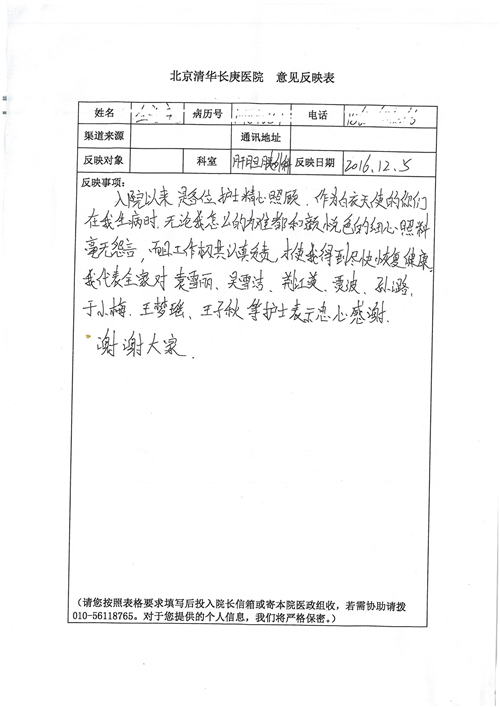 北京清华长庚医院 意见反映表
姓名 病历号 电话
渠道来源 通讯地址
反映对象 科室 肝胆胰外科 反映日期 2016.12.5
反映事项:
入院以来 是各位护士精心照顾. 作为白衣天使的您们
在我生病时, 无论我怎么的刁难都和颜悦色的细心照料
毫无怨言, 而且工作极其认真负责, 才使我得到尽快恢复健康.
我代表全家对 袁雪丽、吴雪洁、荆红英、聂波、孙潞、
于小梅、王梦瑶、王子秋 等护士表示忠心感谢.
谢谢大家.
(请您按照表格要求填写后投入院长信箱或寄本院医政组收，若需协助请拨
010-56118765。对于您提供的个人信息，我们将严格保密。)